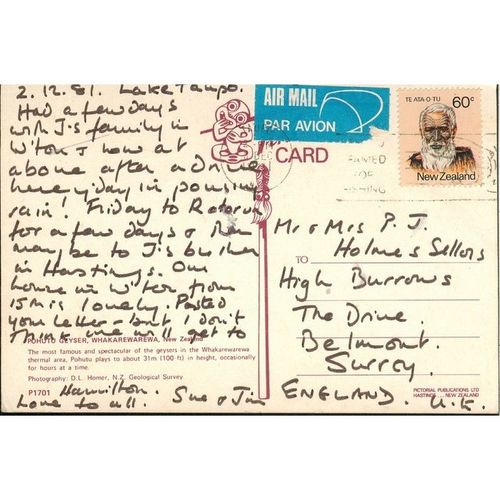 2.12.81. Lake Taupo.
Had a few days
with J's family in
W'ton & now at
above after a drive
here y'day in pouring
rain! Friday to Rotorua
for a few days & then
may be to J's brother
in Hastings. Our
house in W'ton from
15th is lovely. Posted
your letter - but I don't
think we will get to
POHUTU GEYSER, WHAKAREWAREWA, New Zealand
The most famous and spectacular of the geysers in the Whakarewarewa
thermal area, Pohutu plays to about 31m (100 ft) in height, occasionally
for hours at a time.
Photography: D.L. Homer, N.Z. Geological Survey
P1701
Hamilton.
Love to all. Sue & Jim
AIR MAIL
PAR AVION
CARD
TE ATA-O-TU
60c
New Zealand
FAMED
FOR
FISHING
TO
Mr & Mrs P. J.
Holmes Sellors
High Burrows
The Drive
Belmont.
Surrey.
ENGLAND. U.K.
PICTORIAL PUBLICATIONS LTD
HASTINGS NEW ZEALAND